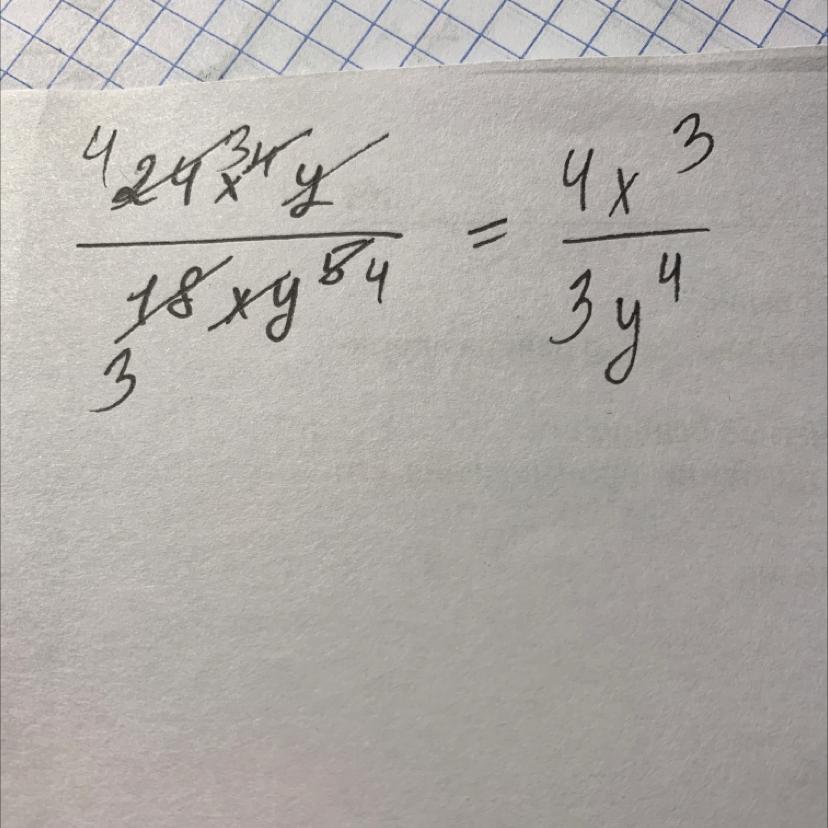 4 24x^3 4 y / 18xy^5 4 3 = 4x^3 / 3y^4